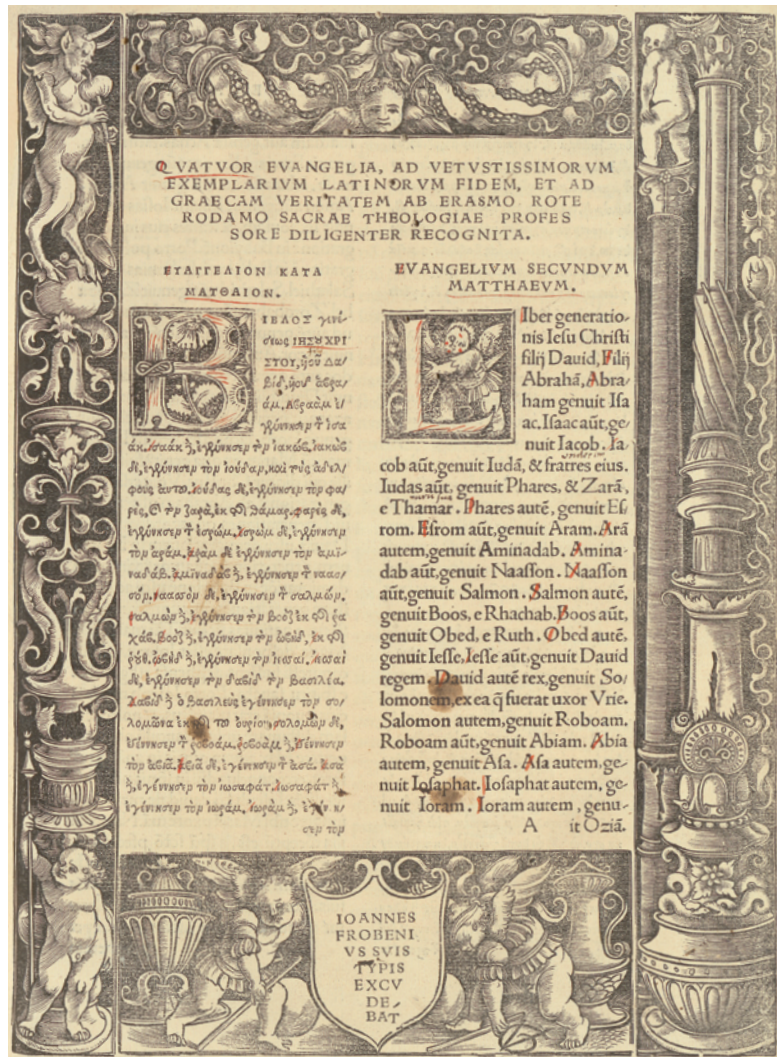 QVATVOR EVANGELIA, AD VETVSTISSIMORVM
EXEMPLARIVM LATINORVM FIDEM, ET AD
GRAECAM VERITATEM AB ERASMO ROTE
RODAMO SACRAE THEOLOGIAE PROFES
SORE DILIGENTER RECOGNITA.
ΕΥΑΓΓΕΛΙΟΝ ΚΑΤΑ
ΜΑΤΘΑΙΟΝ.
ΒΙΒΛΟΣ γενέ/
σεως ΙΗΣΟΥ ΧΡΙ
ΣΤΟΥ, ὑοῦ Δα/
βίδ, ὑοῦ ἀβρα/
άμ. Αβραὰμ ἐ/
γέννησεν τὸν ἰσα
άκ. ἰσαὰκ δὲ, ἐγέννησεν τὸν ἰακώβ. ἰακὼβ
δὲ, ἐγέννησεν τὸν ἰούδαν, καὶ τοὺς ἀδελ
φοὺς αυτου. ἰούδας δὲ, ἐγέννησεν τὸν φα/
ρὲς, καὶ τὸν ζαρὰ, ἐκ τῆς θάμαρ. φαρὲς δὲ,
ἐγέννησεν τὸν ἐσρώμ. ἐσρὼμ δὲ, ἐγέννησεν
τὸν ἀράμ. ἀρὰμ δὲ ἐγέννησεν τὸν αμϊ-
ναδάβ. ἀμϊναδὰβ δὲ, ἐγέννησεν τὸν ναασ/
σόν. ναασσὸν δὲ, ἐγέννησεν τὸν σαλμών.
σαλμὼν δὲ, ἐγέννησεν τὸν βοὸζ ἐκ τῆς ρα
χάβ. βοὸζ δὲ, ἐγέννησεν τὸν ὠβὴδ, ἐκ τῆς
ῥούθ. ὠβὴδ δὲ, ἐγέννησεν τὸν ἰεσσαί. ἰεσσαὶ
δὲ, ἐγέννησεν τὸν δαβὶδ τὸν βασιλέα.
δαβὶδ δὲ ὁ βασιλεὺς ἐγέννησεν τὸν σο/
λομῶνα ἐκ τῆς του ουρίου, σολομὼν δὲ,
ἐγέννησεν τὸν ροβοάμ. ροβοὰμ δὲ, ἐγέννησεν
τὸν αβιά. ἀβιὰ δὲ, ἐγέννησεν τὸν ασά. ασὰ
δὲ, ἐγέννησεν τὸν ἰωσαφάτ. ἰωσαφὰτ δὲ
ἐγέννησεν τὸν ἰωράμ. ἰωρὰμ δὲ, ἐγέννη
σεν τὸν
EVANGELIVM SECVNDVM
MATTHAEVM.
LIber generatio-
nis Iesu Christi
filij Dauid, Filij
Abrahã, Abra-
ham genuit Isa
ac. Isaac aũt, ge-
nuit Iacob. Ia
cob aũt, genuit Iudã, & fratres eius.
Iudas aũt, genuit Phares, & Zarã,
e Thamar. Phares autẽ, genuit Es/
rom. Esrom aũt, genuit Aram. Arã
autem, genuit Aminadab. Amina-
dab aũt, genuit Naasson. Naasson
aũt, genuit Salmon. Salmon autẽ,
genuit Boos, e Rhachab. Boos aũt,
genuit Obed, e Ruth. Obed autẽ,
genuit Iesse, Iesse aũt, genuit Dauid
regem. Dauid autẽ rex, genuit So/
lomonem, ex ea q̃ fuerat uxor Vrie.
Salomon autem, genuit Roboam.
Roboam aũt, genuit Abiam. Abia
autem, genuit Asa. Asa autem, ge-
nuit Iosaphat. Iosaphat autem, ge-
nuit Ioram. Ioram autem, genu-
A it Oziã.
IOANNES
FROBENI
VS SVIS
TYPIS
EXCV
DE/
BAT